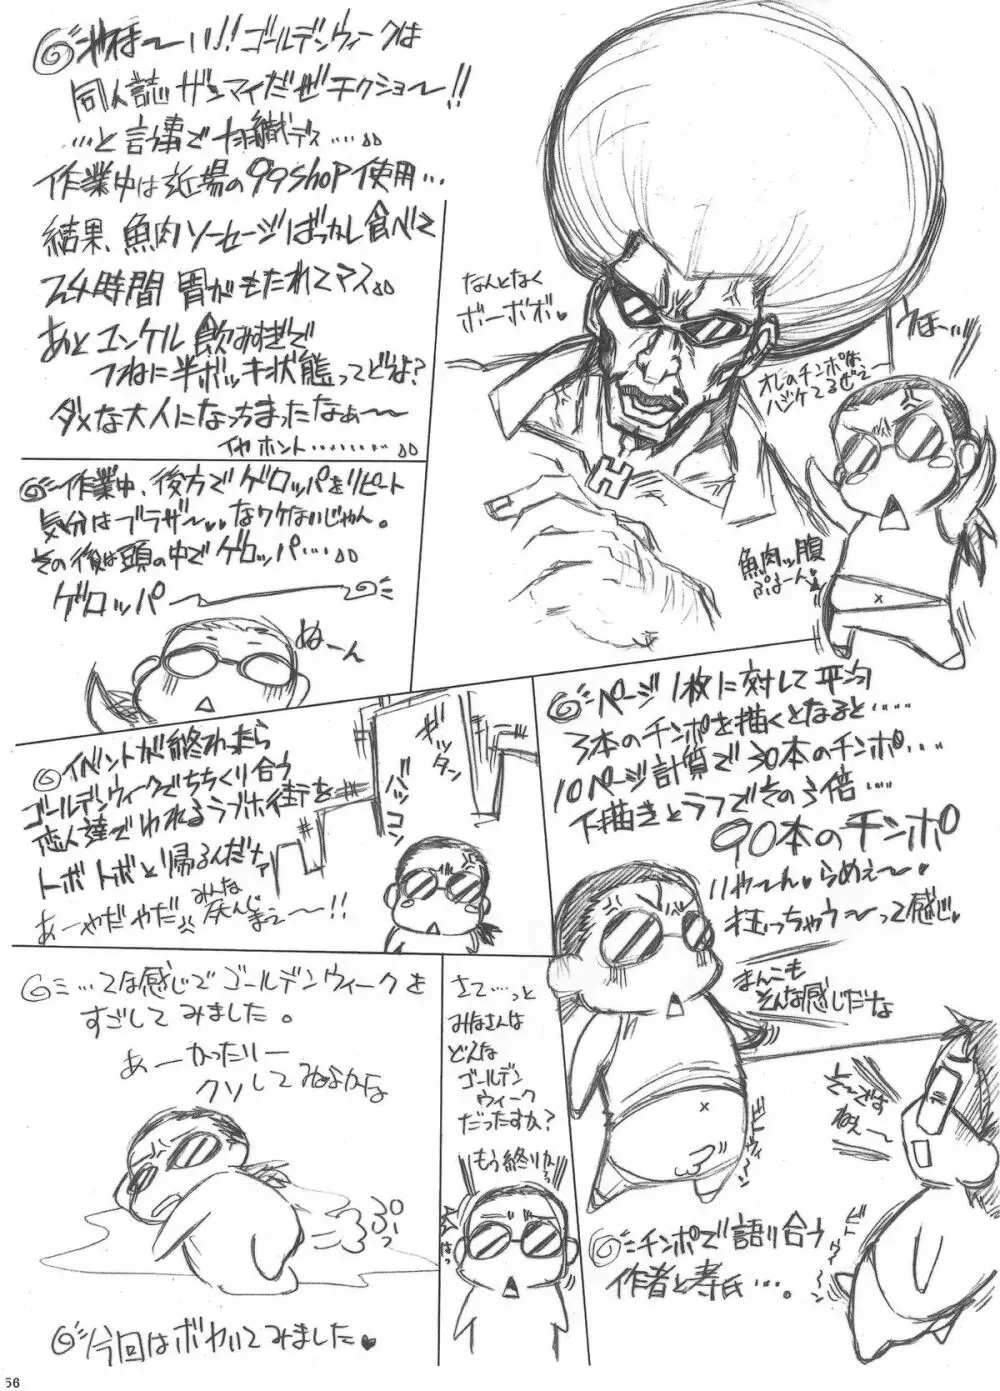 やほ〜い!!ゴールデンウィークは
同人誌ザンマイだぜチクショ〜!!
…と言う事で
作業中は近場の99shop使用…
結果、魚肉ソーセージばっかし食べて
24時間 胃がもたれてマス。。
あとユンケル飲みすぎで
つねに半ボッキ状態ってどうよ?
ダメな大人になっちまったなぁ〜〜
イヤホント………
なんとなく
ボーボボ♥
うほー…ッ
オレのチンポは
ハジケてるぜェ〜
魚肉ッ腹
ぷよーん♥
作業中、後方でゲロッパをリピート
気分はブラザ〜♥♥なワケないじゃん。
その後は頭の中でゲロッパ…
ゲロッパ
ぬーん
イベントが終わったら
ゴールデンウィークでちちくり合う
恋人達でわれるラブホ街を
トボトボと帰るんだナァ
あーやだやだ
みんな
灰んじまえ〜〜!!
ギッタン
バッコン
ページ1枚に対して平均
3本のチンポを描くとなると……
10ページ計算で30本のチンポ…
下描きとラフでその3倍……
90本のチンポ
リャ〜ん♥らめぇ〜♥
狂っちゃう〜って感じ♥
まんこも
そんな感じだな
そ〜ですねぇ〜
チンポで語り合う
作者と寿氏…。
…てな感じでゴールデンウィークを
すごしてみました。
あーかったりー
クソしてねよかな
ぷぅっ
今回はボヤいてみました♥
さて…っと
みなさんは
どんな
ゴールデン
ウィーク
だったすか?
もう終りかょっ
56